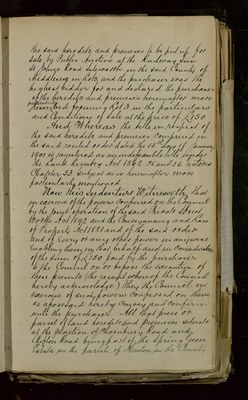 the said heredits and premises to be put up for
sale by Public Auction at the Railway Inn
St Johns Road Isleworth in the said County of
Middlesex in Lots and the purchaser was the
highest bidder for and declared the purchaser
of the heredits and premises hereinafter more
described forming Lot 3 in the particulars
and Conditions of Sale at the price of £150
And Whereas the title in respect of
the said heredits and premises comprised in
the said rented order dated the 15th day of January
1901 is registered as an indefeasible title under
the Land Registry Act 1862 25 and 26 Victoria
Chapter 53 subject as is hereinafter more
particularly mentioned
Now this Indenture Witnesseth that
in exercise of the powers conferred on the Council
by the joint operation of the said Private Street
Works Act 1892 and the Conveyancing and Law
of Property Act 1881 and of the said order
and of every or any other power in anywise
enabling them in that behalf and in Consideration
of the sum of £150 paid by the purchaser
to the Council on or before the execution of
these presents (the receipt whereof the Council
hereby acknowledge) They the Council in
exercise of such powers conferred on them
as aforesaid hereby Convey and Confirm
unto the purchaser All that piece or
parcel of land heredits and premises situate
at the junction of Thornbury Road and
Clifton Road being part of the Spring Grove
Estate in the Parish of Heston in the County